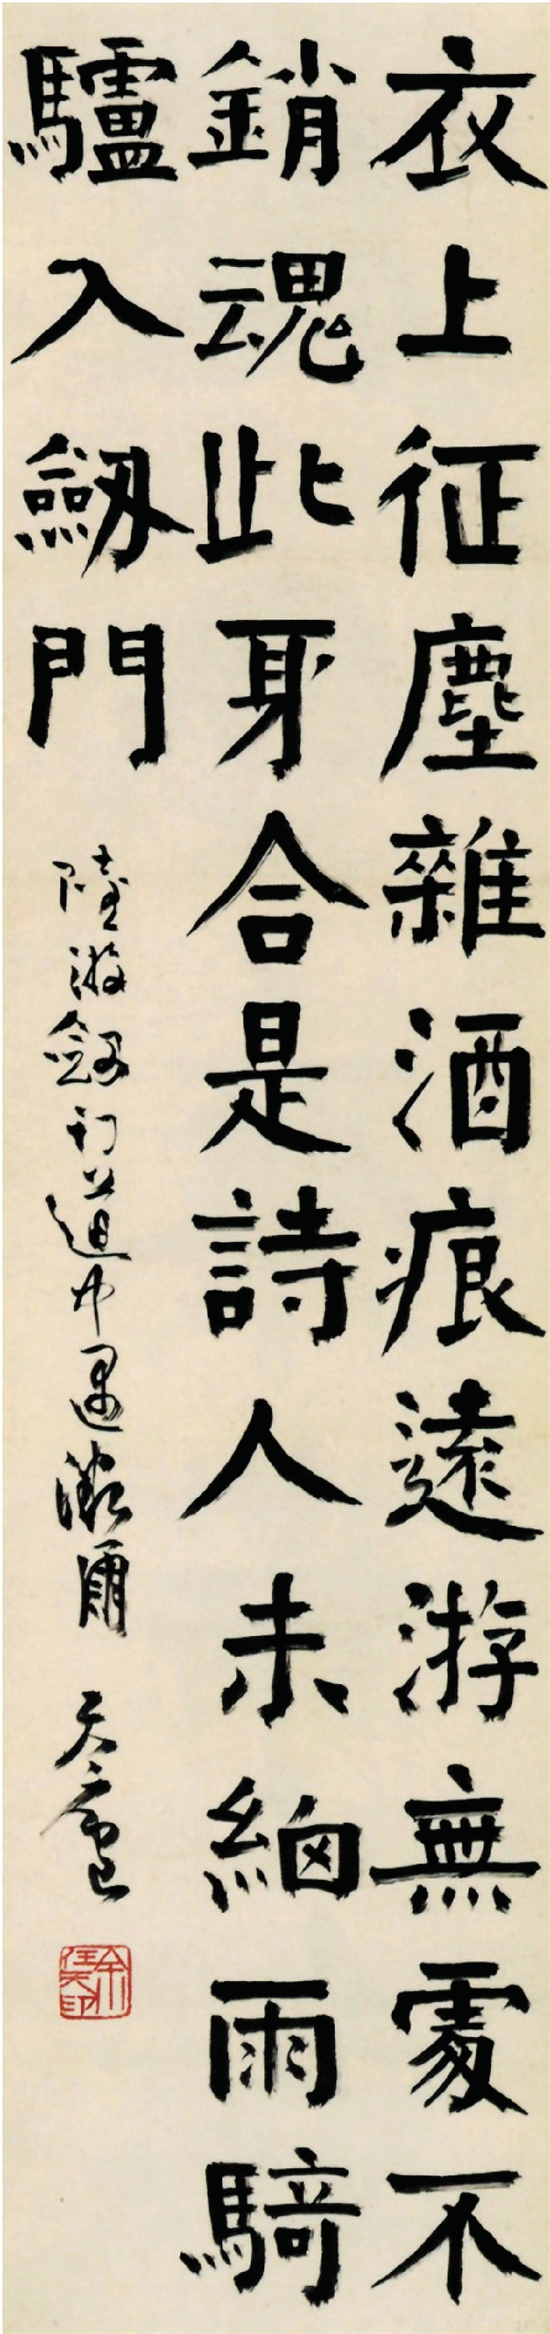 衣上征塵雜酒痕遠游無處不
銷魂此身合是詩人未細雨騎
驢入劒門
陸游劒門道中遇微雨
天廬
余任天印